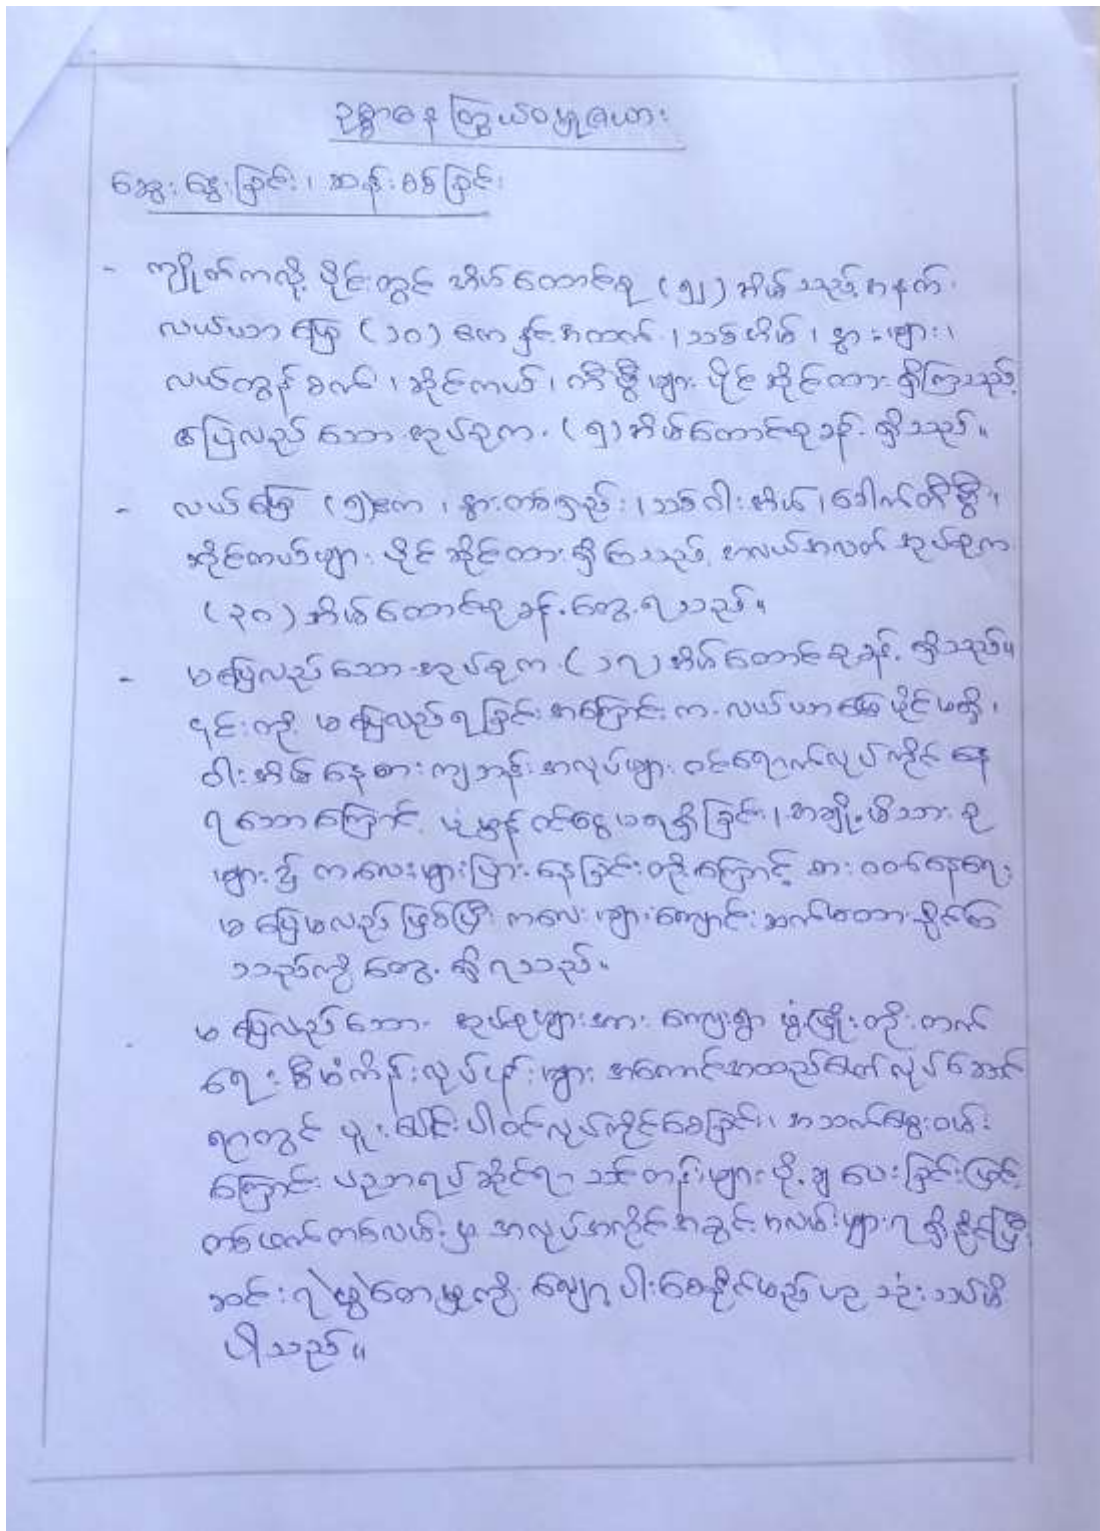 ဥစ္စာဓန ကြွယ်ဝမှုဇယား
ဆွေးနွေးခြင်း၊ ဆန်းစစ်ခြင်း
- ကျိုတ်ကလို့ ပိုင်းတွင် အိမ်ထောင်စု (၅၂) အိမ်သည့်အနက်
လယ်ယာမြေ (၁၀) ဧကနှင့်အထက်၊ သစ်အိမ်၊ နွားများ၊
လယ်ထွန်စက်၊ ဆိုင်ကယ်၊ တီဗွီများ ပိုင်ဆိုင်ထားရှိကြသည့်
ပြေလည်သော အုပ်စုက (၅) အိမ်ထောင်စုခန့် ရှိသည်။
- လယ်မြေ (၅)ဧက၊ နွားတစ်ရှဉ်း၊ သစ်ဝါးအိမ်၊ အောက်တီဗွီ၊
ဆိုင်ကယ်များ ပိုင်ဆိုင်ထားရှိကြသည့် အလယ်အလတ်အုပ်စုက
(၃၀) အိမ်ထောင်စုခန့် တွေ့ရသည်။
- မပြေလည်သော အုပ်စုက (၁၇) အိမ်ထောင်စုခန့် ရှိသည်။
၎င်းတို့ မပြေလည်ရခြင်းအကြောင်းက လယ်ယာမြေပိုင်မရှိ၊
ဝါးအိမ်နေစားကျဘန်းအလုပ်များ ဝင်ရောက်လုပ်ကိုင်နေ
ရသောကြောင့် ပုံမှန်ဝင်ငွေမရရှိခြင်း၊ အချို့မိသားစု
များ၌ ကလေးများပြားနေခြင်းတို့ကြောင့် စားဝတ်နေရေး
မပြေမလည်ဖြစ်ပြီး ကလေးများကျောင်းဆက်မထားနိုင်ကြ
သည်ကို တွေ့ရှိရသည်။
မပြေလည်သော အုပ်စုများအား ကျေးရွာဖွံ့ဖြိုးတိုးတက်
ရေး စီမံကိန်းလုပ်ငန်းများ အကောင်အထည်ဖော်လုပ်ဆောင်
ရာတွင် ပူးပေါင်းပါဝင်လုပ်ကိုင်စေခြင်း၊ အသက်မွေးဝမ်း
ကြောင်း ပညာရပ်ဆိုင်ရာ သင်တန်းများပို့ချပေးခြင်းဖြင့်
တစ်ဖက်တစ်လမ်းမှ အလုပ်အကိုင်အခွင့်အလမ်းများရရှိနိုင်ပြီး
ဆင်းရဲနွမ်းတေမှုကို လျော့ပါးစေနိုင်မည်ဟု သုံးသပ်မိ
ပါသည်။